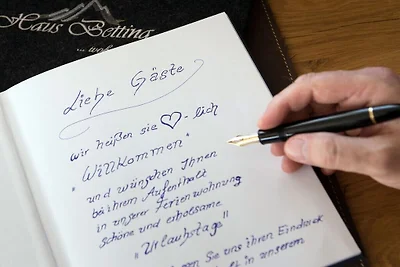 Haus Betting
... wo
Liebe Gäste
wir heißen sie ♡-lich
"Willkommen"
und wünschen Ihnen
bei ihrem Aufenthalt
in unserer Ferienwohnung
schöne und erholsame
"Urlaubstage"
gen Sie uns ihren Eindruck
lt in unserem